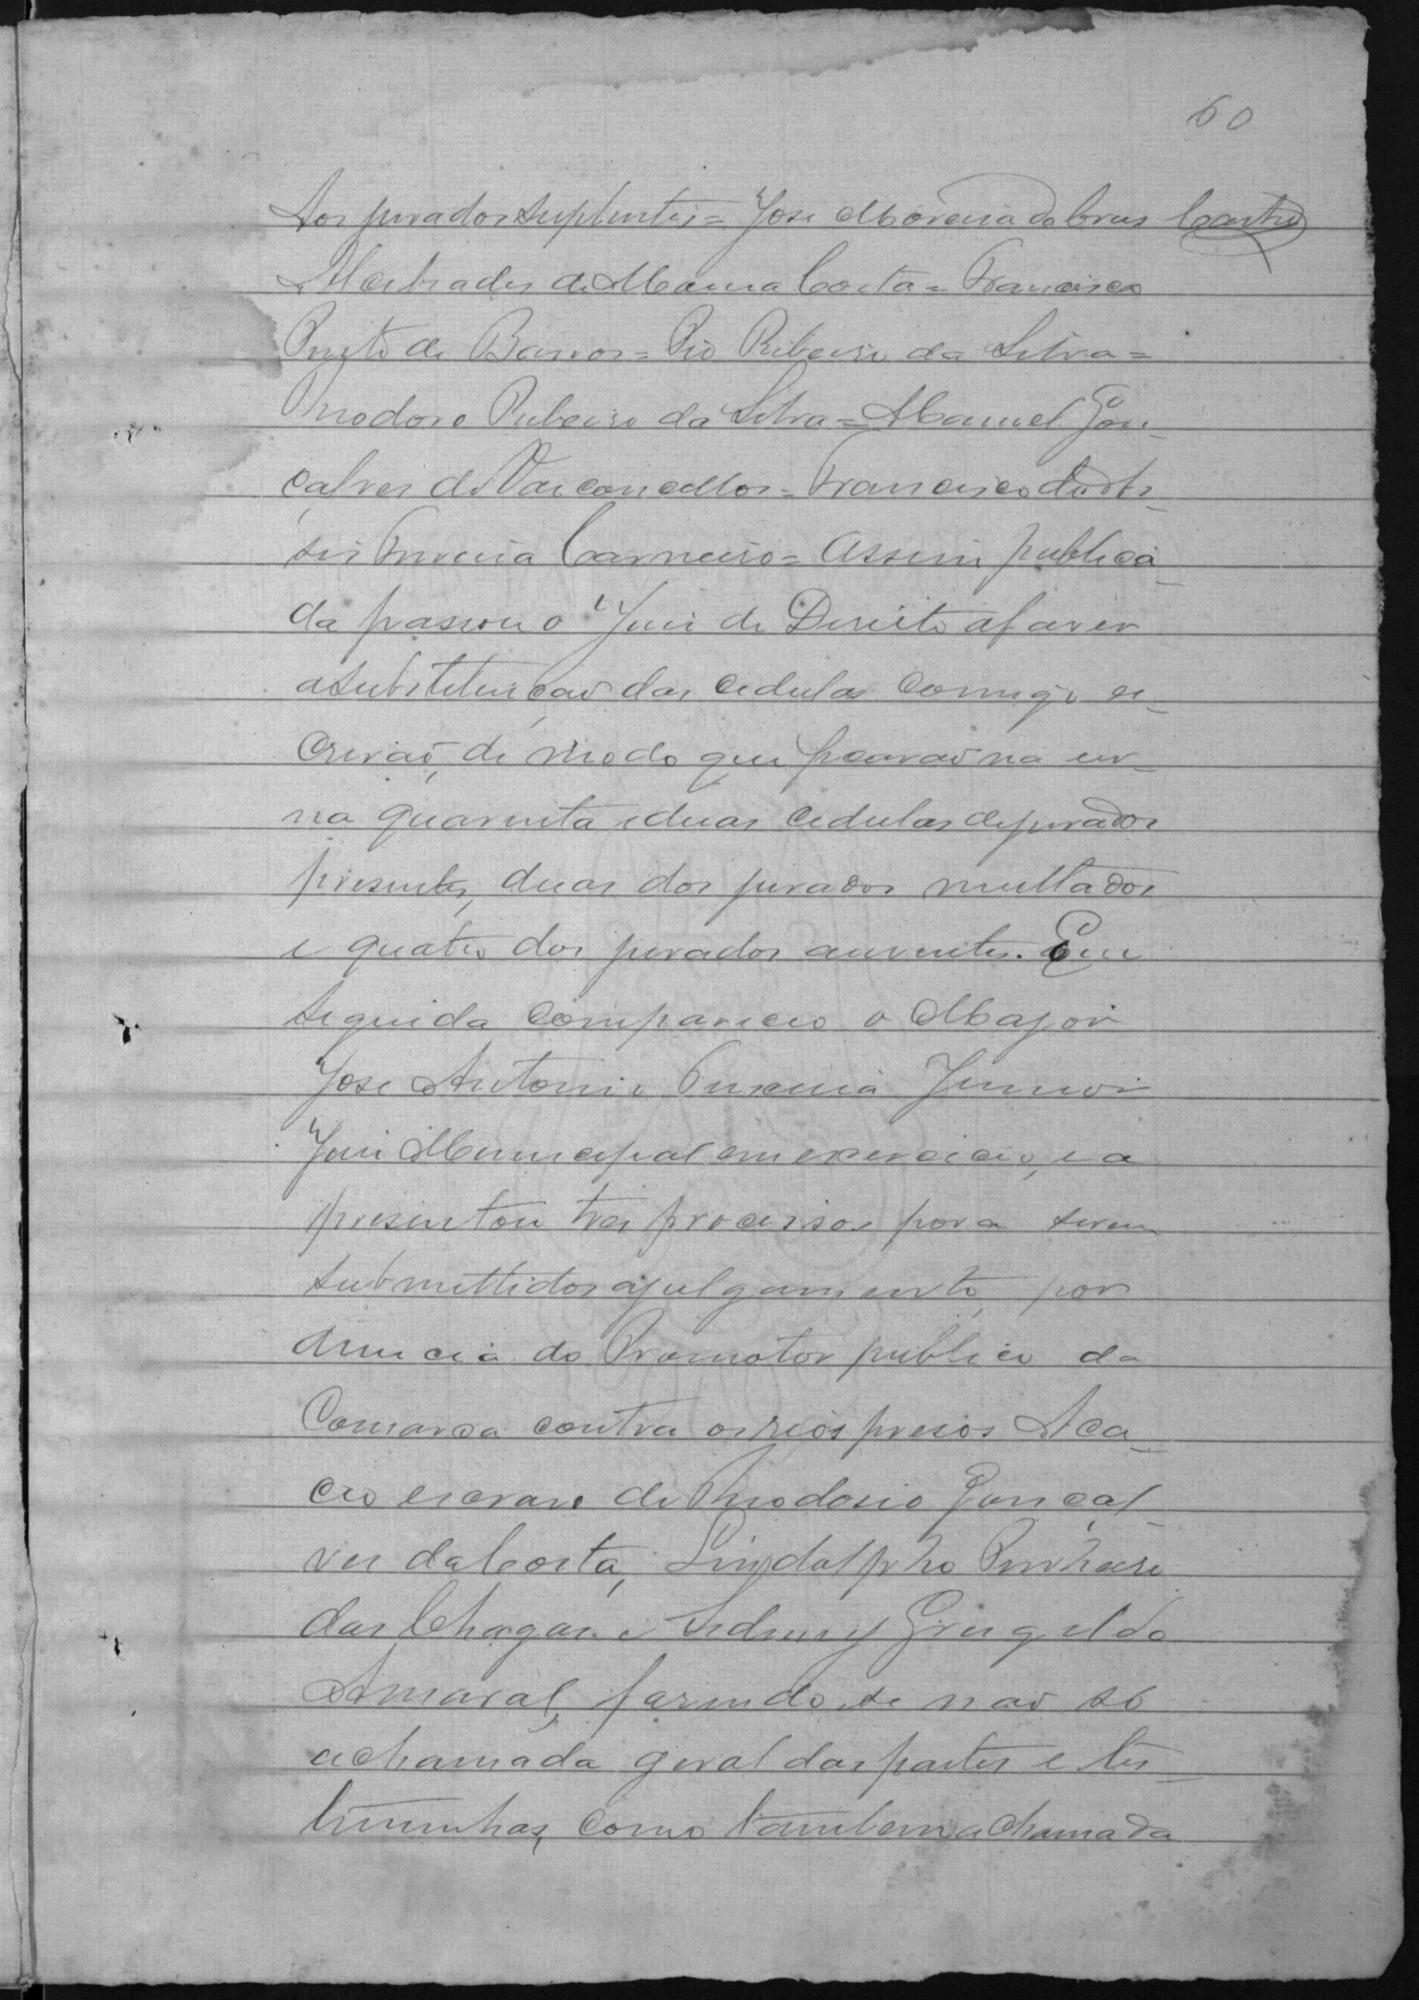 60
Dos jurados suplentes = José Moreira da Cruz Castro
de Moura Costa = Francisco
Preto de Barros = Pio Ribeiro da Silva =
Theodoro Ribeiro da Silva = Manuel Gon-
çalves de Vasconcellos = Francisco
Carneiro = Assim publica-
da passou o Juiz de Direito afazer
asubstituição das cedulas comigo es-
crivão, de modo que ficarão na ur-
na quarenta eduas cedulas dejurados
presentes, duas dos jurados multados
e quatro dos jurados auzentes. Em
seguida compareceo o Major
José Antonio Junior
Juiz Municipal em exercicio, e a
presentou tres processos para serem
submettidos ajulgamento, por
denuncia do Promotor publico da
Comarca contra os réos presos Aca-
cio escravo de Theodosio Gonçal-
ves da Costa, Lindolpho Pinheiro
das Chagas e Sidney Gringel do
Amaral, fazendo se não só
achamada geral das partes e tes-
timunhas, como tambem achamada